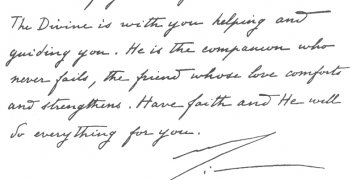 The Divine is with you helping and
guiding you. He is the companion who
never fails, the friend whose love comforts
and strengthens. Have faith and He will
do everything for you.